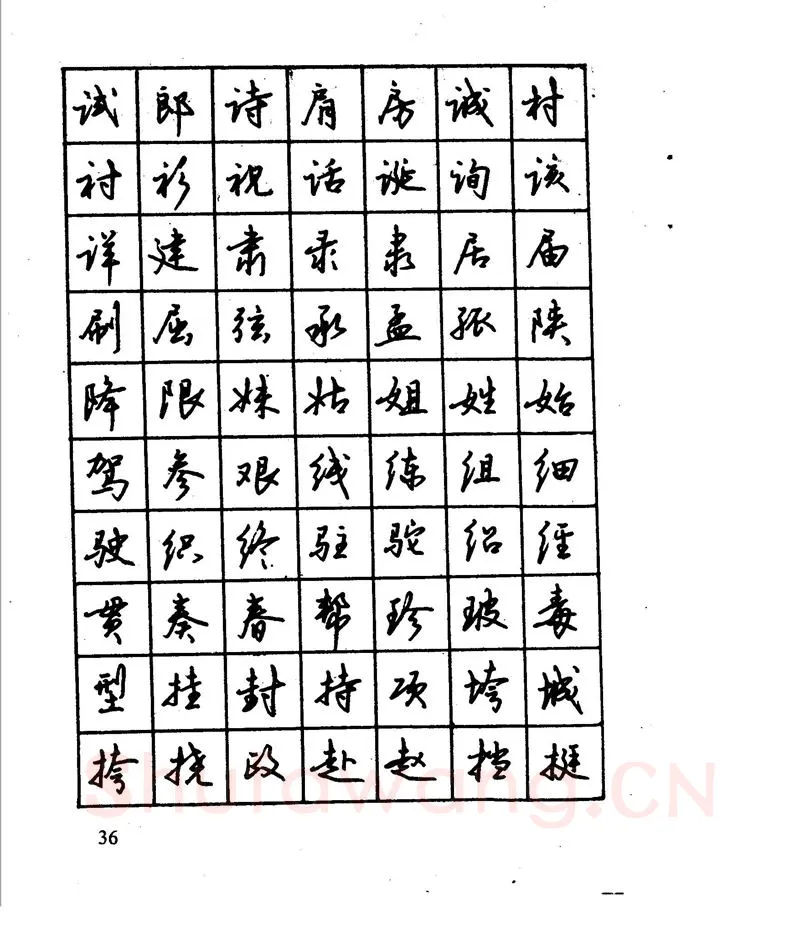 试 郎 诗 肩 房 诚 村
衬 衫 祝 话 诞 询 该
详 建 肃 录 隶 居 届
刷 屈 弦 承 孟 孤 陕
降 限 妹 姑 姐 姓 始
驾 参 艰 线 练 组 细
驶 织 终 驻 驼 绍 经
贯 奏 春 帮 珍 玻 毒
型 挂 封 持 项 垮 城
挎 挠 政 赴 赵 挡 挺
Shufawang.CN
36